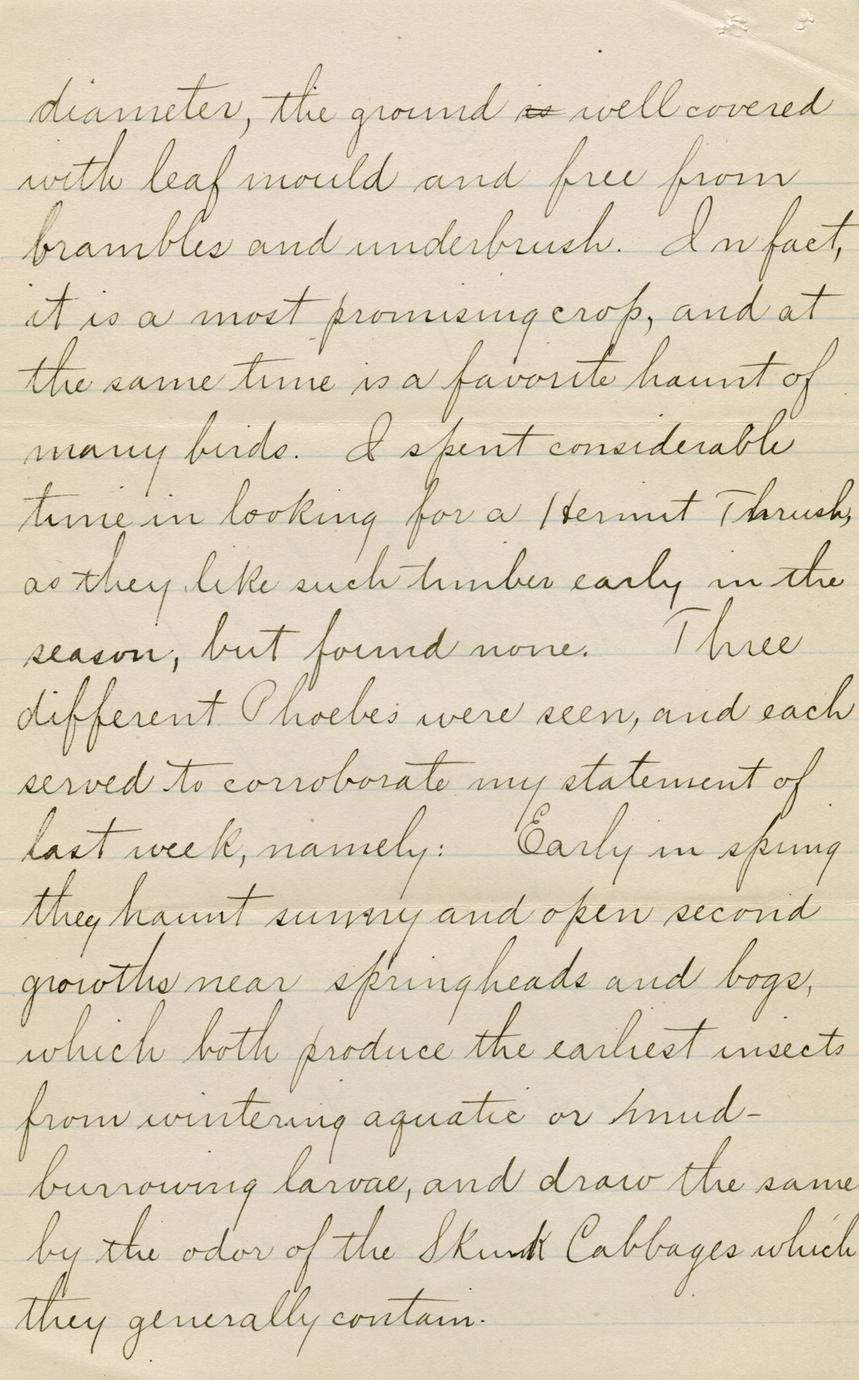 diameter, the ground is well covered
with leaf mould and free from
brambles and underbrush. In fact,
it is a most promising crop, and at
the same time is a favorite haunt of
many birds. I spent considerable
time in looking for a Hermit Thrush,
as they like such timber early in the
season, but found none. Three
different Phoebes were seen, and each
served to corroborate my statement of
last week, namely: Early in spring
they haunt sunny and open second
growths near springheads and bogs,
which both produce the earliest insects
from wintering aquatic or mud-
burrowing larvae, and draw the same
by the odor of the Skunk Cabbages which
they generally contain.